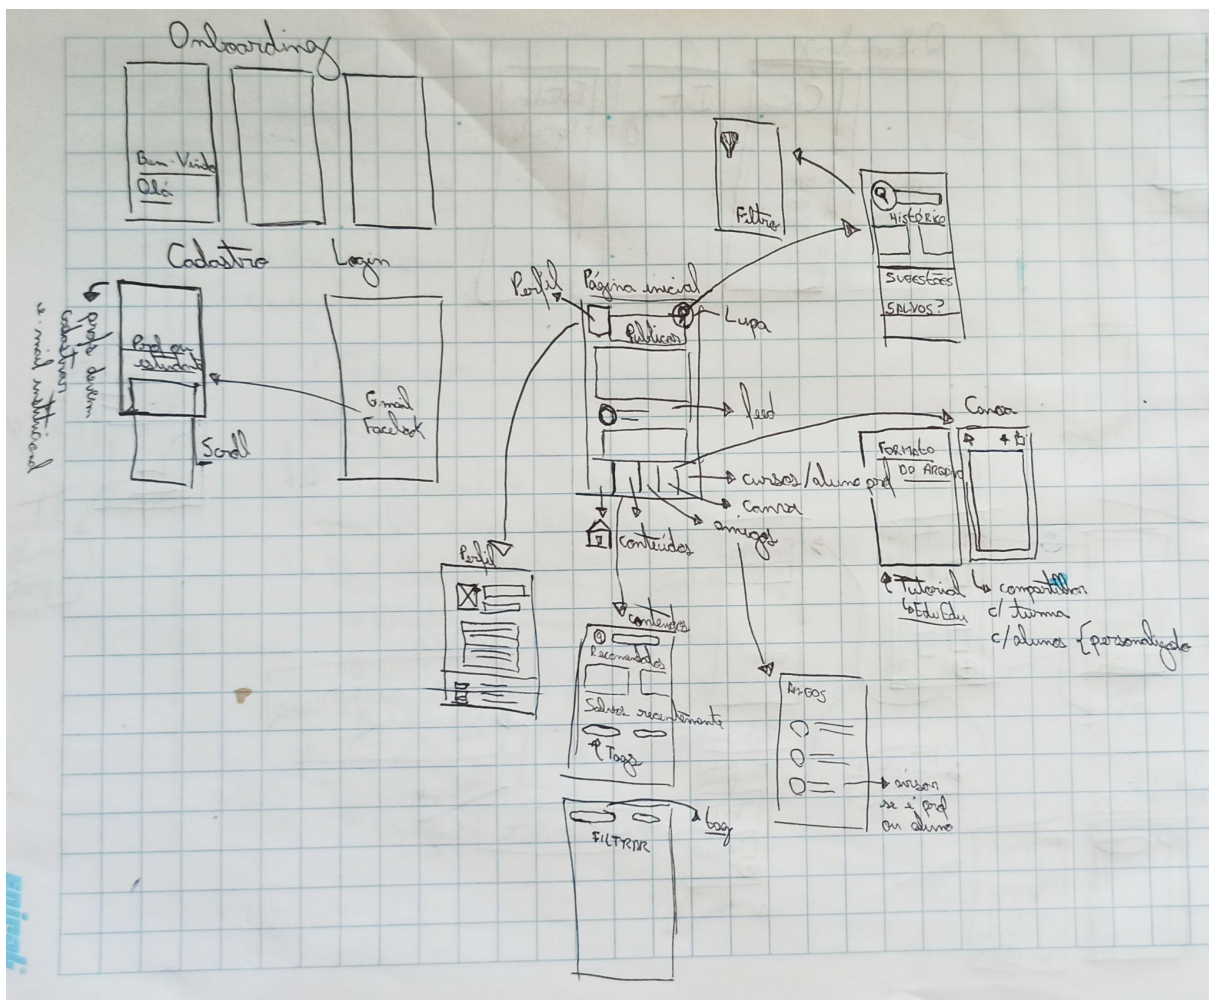 Onboarding
Bem-Vindo
Olá
Cadastro
Login
profs devem
cadastrar
e-mail institucional
Prof ou
estudante
Scroll
Gmail
Facebook
Filtro
HISTÓRICO
SUGESTÕES
SALVOS?
Perfil
Página inicial
Lupa
Publicar
feed
cursos/aluno prof
canva
amigos
conteúdos
Canva
FORMATO
DO ARQUIVO
Tutorial
EduEdu
compartilhar
c/ turma
c/alunos { personalizado
Perfil
conteúdos
Recomendados
Salvos recentemente
Tags
tag
FILTRAR
AMIGOS
avisar
se é prof
ou aluno